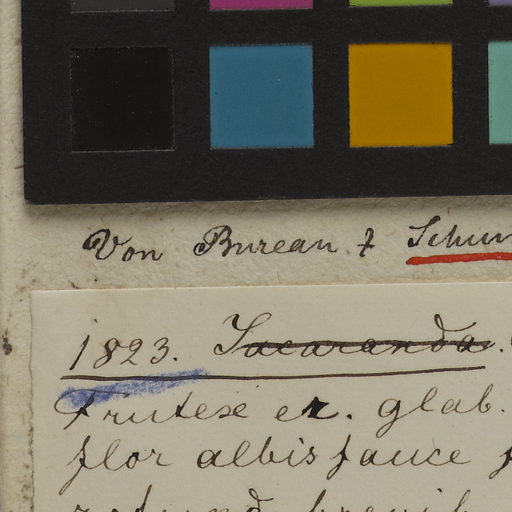 Von Bureau &
1823. Jacaranda.
Frutex er. glab.
flor albis fauce